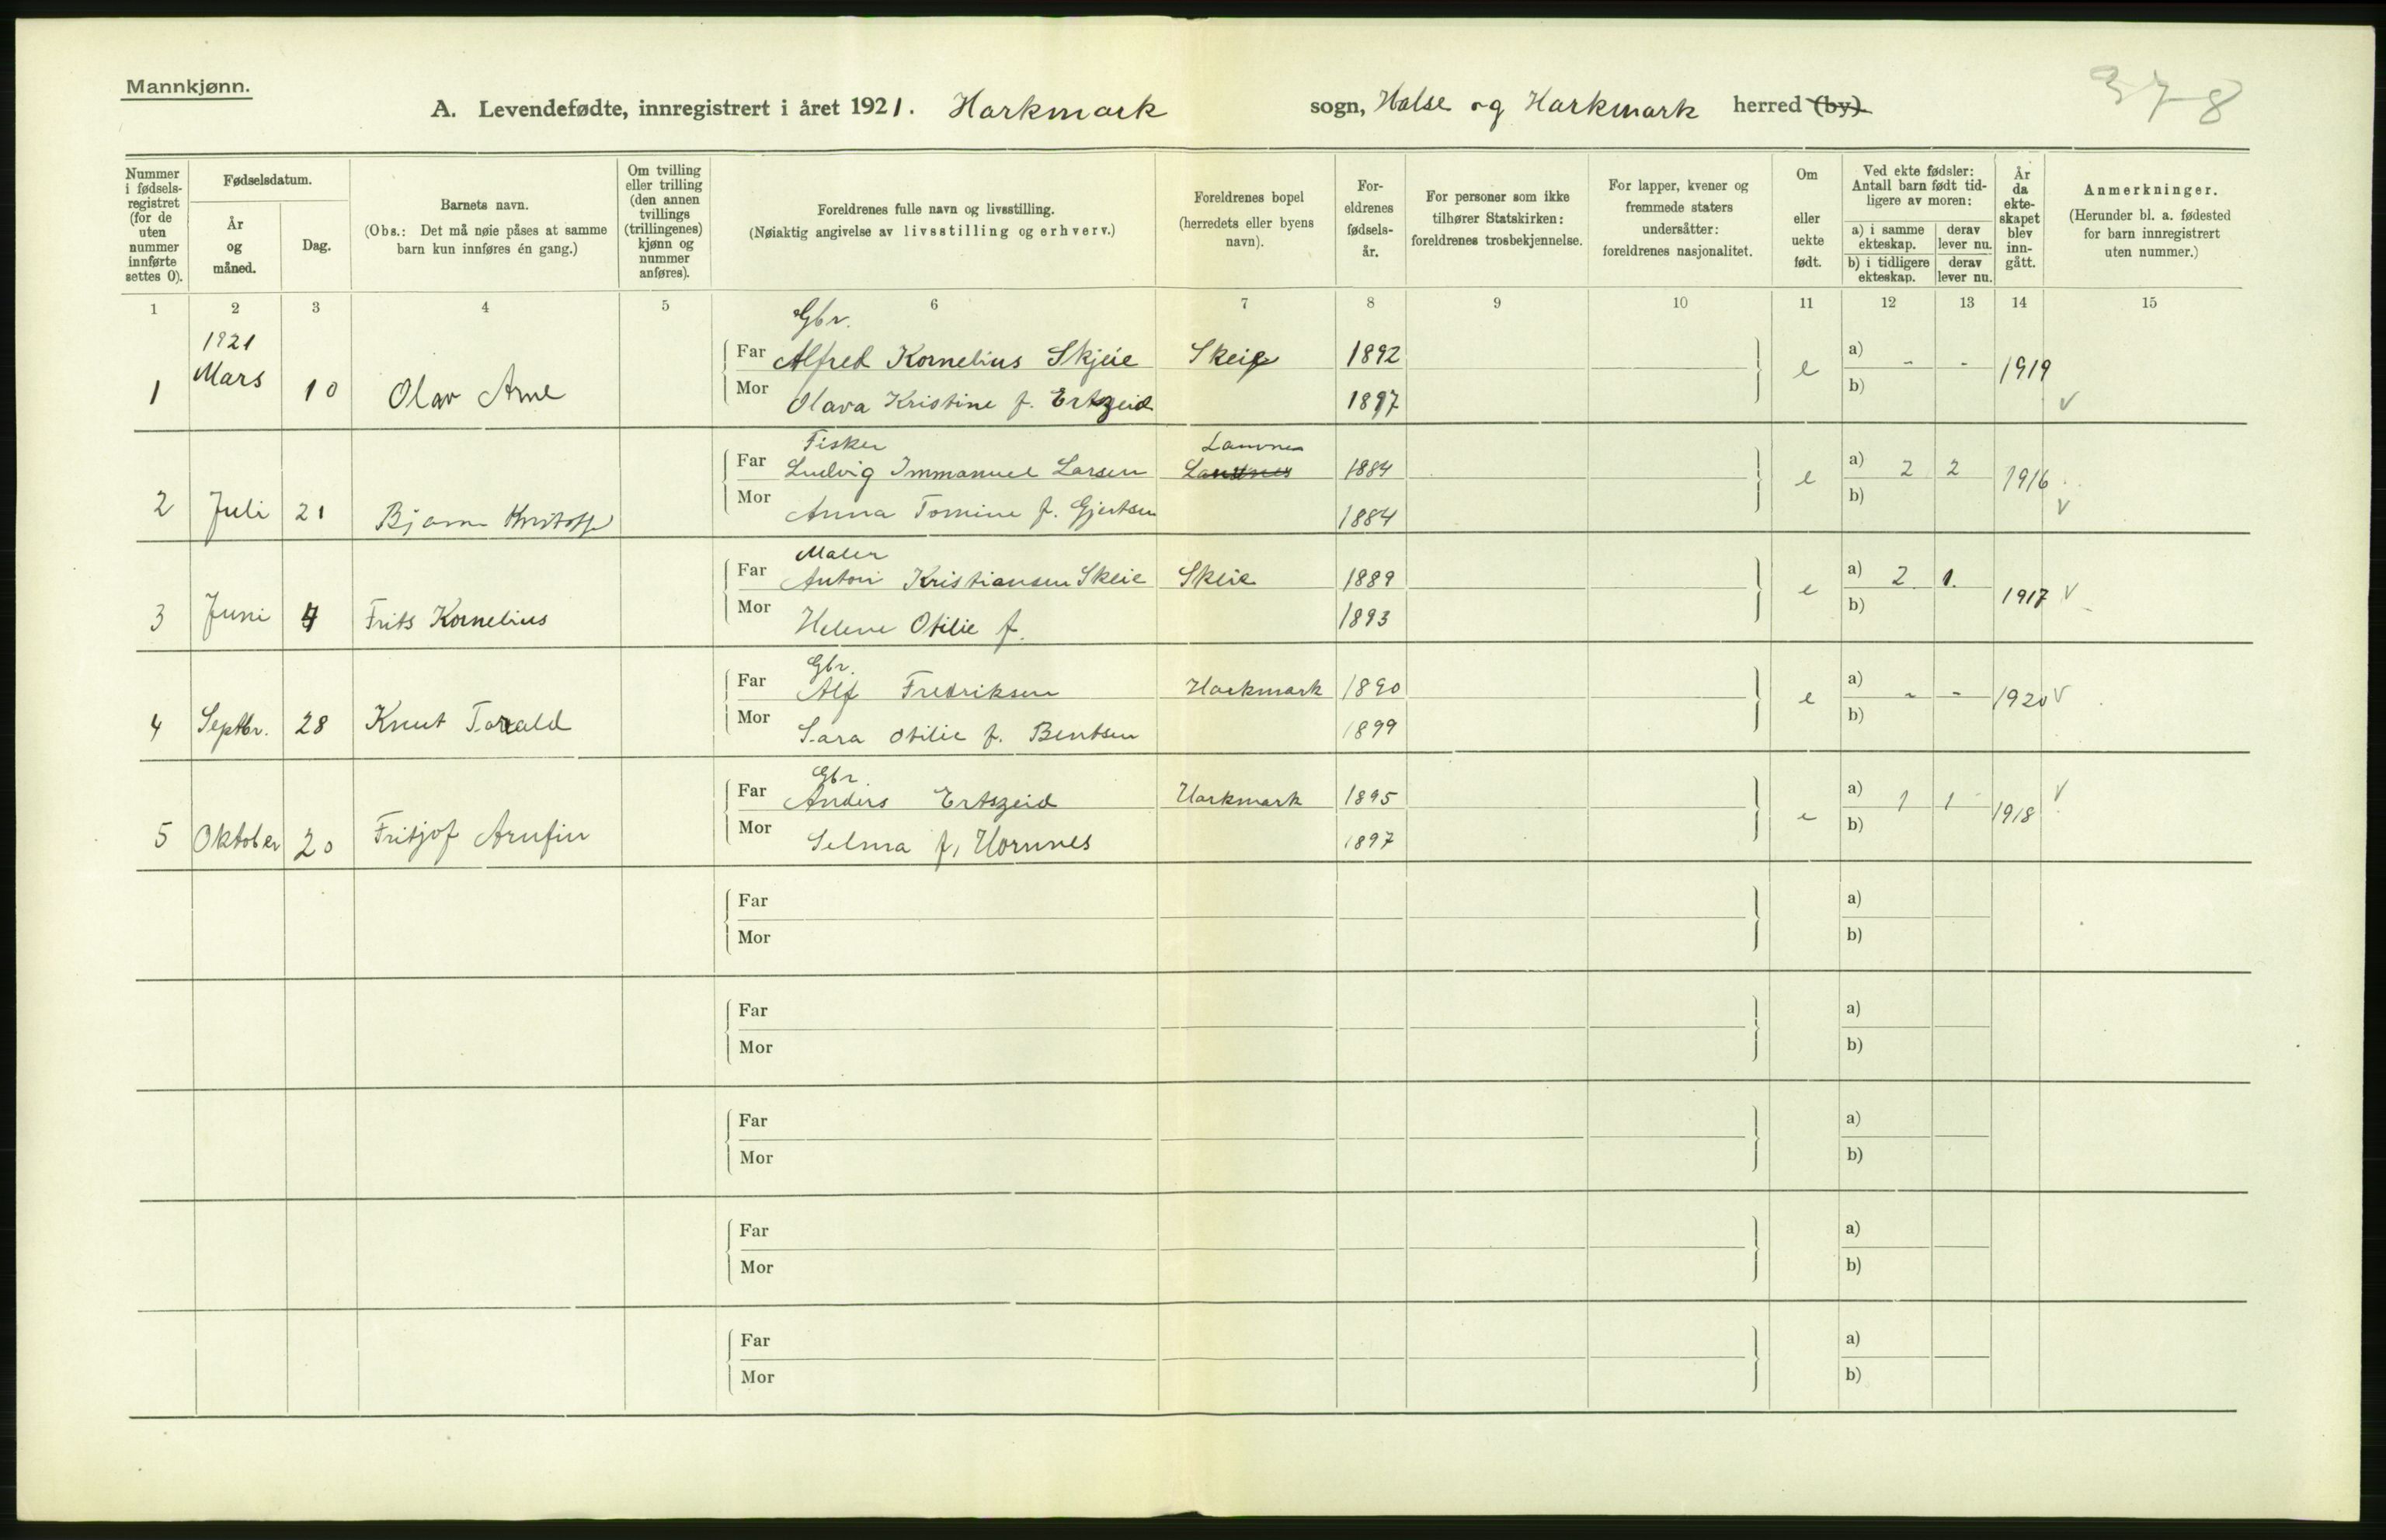 Mannkjønn.
378
A. Levendefødte, innregistrert i året 1921. Harkmark sogn, Halse og Harkmark herred (by)
Nummer i fødsels-registret (for de uten nummer innførte settes 0).
Fødselsdatum.
År og måned.
Dag.
Barnets navn.
(Obs.: Det må nøie påses at samme barn kun innføres én gang.)
Om tvilling eller trilling (den annen tvillings (trillingenes) kjønn og nummer anføres).
Foreldrenes fulle navn og livsstilling.
(Nøiaktig angivelse av livsstilling og erhverv.)
Foreldrenes bopel (herredets eller byens navn).
For-eldrenes fødsels-år.
For personer som ikke tilhører Statskirken: foreldrenes trosbekjennelse.
For lapper, kvener og fremmede staters undersåtter: foreldrenes nasjonalitet.
Om eller uekte født.
Ved ekte fødsler: Antall barn født tid-ligere av moren:
a) i samme ekteskap.
derav lever nu.
b) i tidligere ekteskap.
derav lever nu.
År da ekte-skapet blev inn-gått.
Anmerkninger.
(Herunder bl. a. fødested for barn innregistrert uten nummer.)
1 2 3 4 5 6 7 8 9 10 11 12 13 14 15
1921
Gbr.
1 Mars 10 Olav Arne Far Alfred Kornelius Skjeie Skeie 1892 e a) - - 1919
Mor Olava Kristine f. Ertzeid 1897 b) V
Fisker Lamnes
2 Juli 21 Bjarne Far Ludvig Immanuel Larsen 1884 e a) 2 2 1916
Mor Anna Tomine f. Gjertsen 1884 b) V
Maler
3 Juni 4 Frits Kornelius Far Anton Kristiansen Skeie Skeie 1889 e a) 2 1. 1917 V
Mor Helene Otilie f. 1893 b)
Gbr.
4 Septbr. 28 Knut Torald Far Alf Fredriksen Harkmark 1890 e a) - - 1920 V
Mor Sara Otilie f. Bentsen 1899 b)
Gbr.
5 Oktober 20 Fritjof Arnfin Far Anders Ertszeid Harkmark 1895 e a) 1 1 1918 V
Mor Selma f. Hornnes 1897 b)
Far a)
Mor b)
Far a)
Mor b)
Far a)
Mor b)
Far a)
Mor b)
Far a)
Mor b)